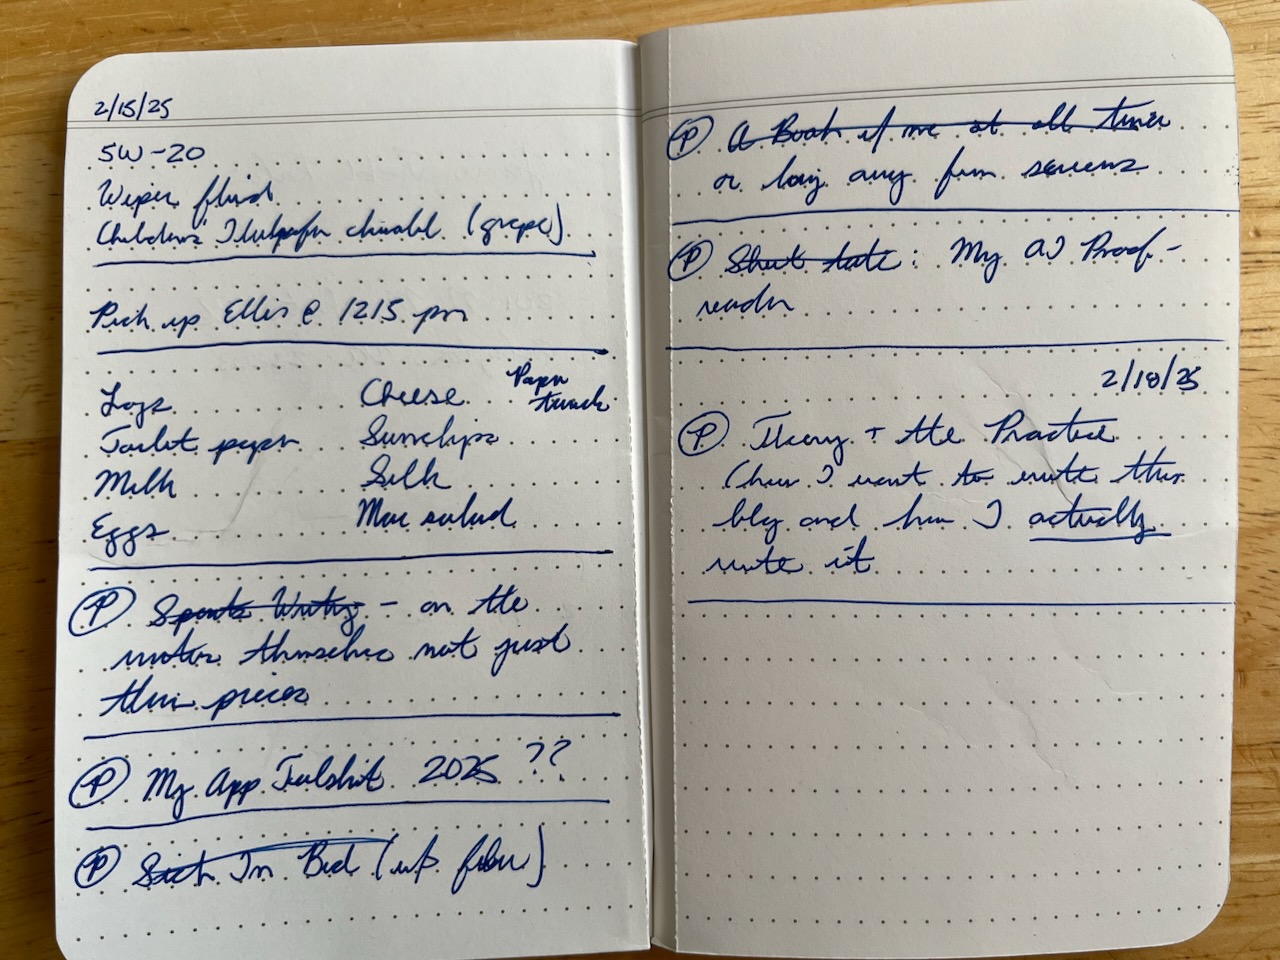 2/15/25
5W-20
Wiper fluid
Childrens' chewable (grape)
Pick up Ellis @ 1215 pm
Logs
Toilet paper
Milk
Eggs
Cheese
Sunchips
Silk
Mac salad
Paper
towels
P Sports Writing - on the
writers themselves not just
their pieces
P My App 2025 ??
P Sick In Bed (w/ fever)
P A Book w/ me at all times
or being away from screens
P Short take: My AI Proof-
reader
2/18/25
P Theory + the Practice
(how I want to write this
blog and how I actually
write it